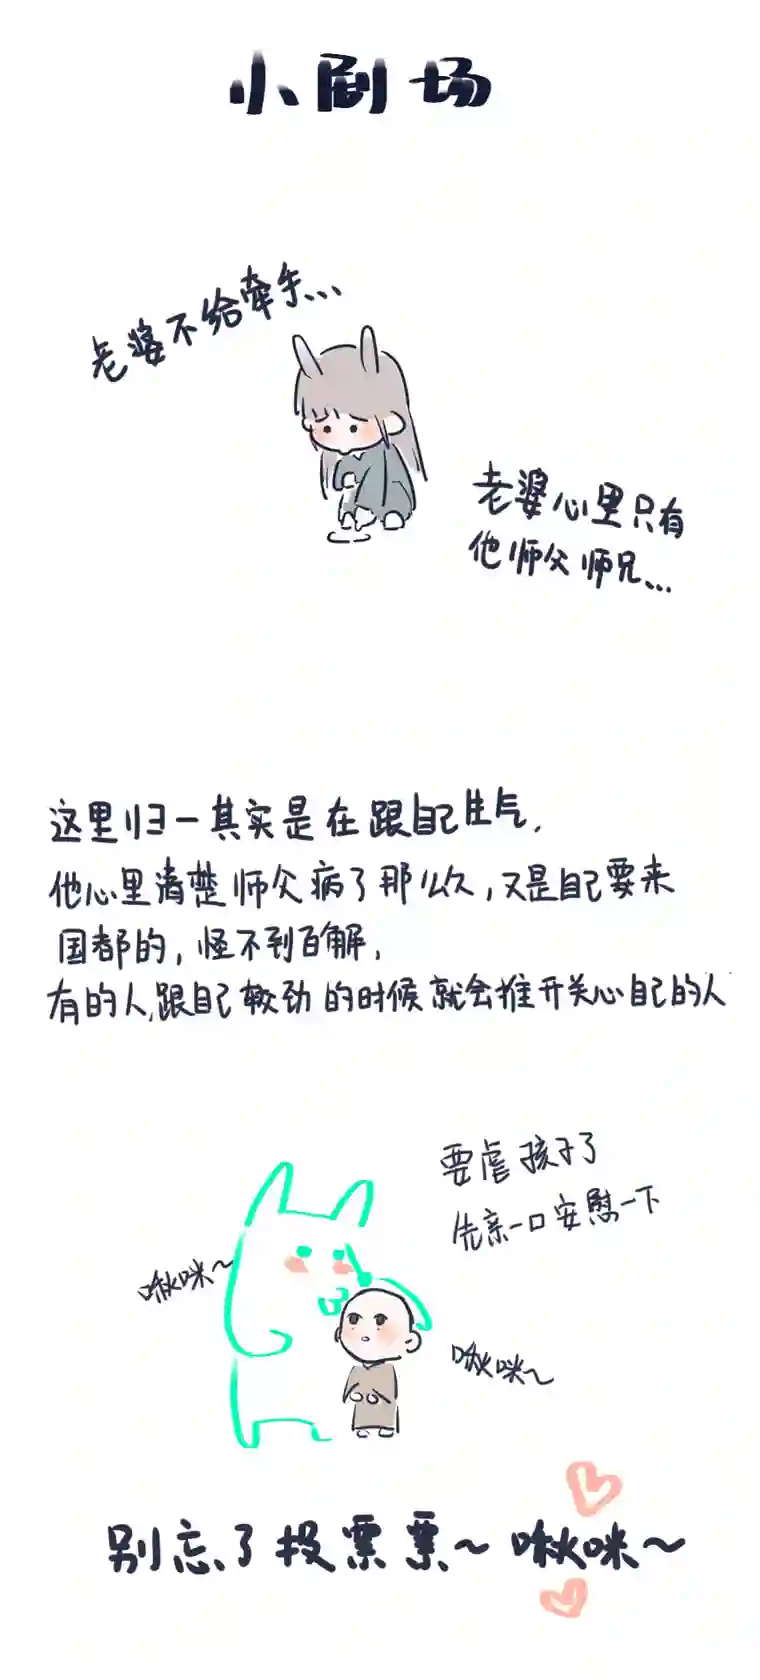 小剧场
老婆不给牵手...
老婆心里只有
他师父师兄...
这里归一其实是在跟自己生气,
他心里清楚师父病了那么久,又是自己要来
国都的,怪不到百解,
有的人,跟自己较劲的时候就会推开关心自己的人
要虐孩子了
先亲一口安慰一下
啾咪~
啾咪~
别忘了投票票~啾咪~